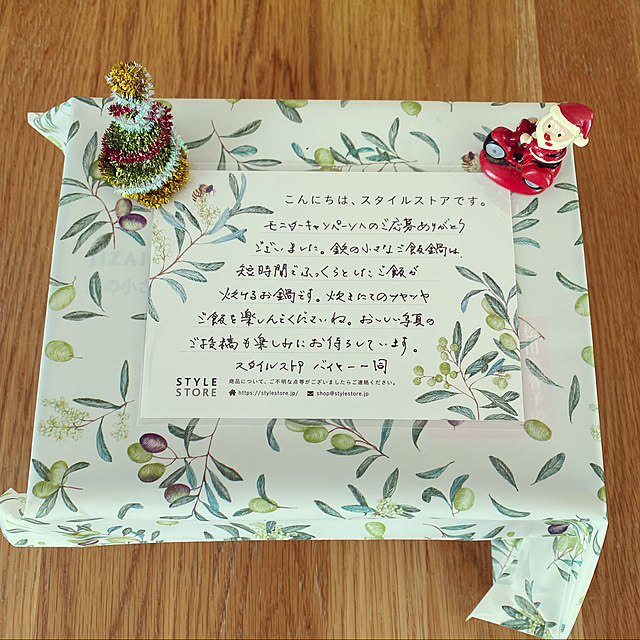 こんにちは、スタイルストアです。
モニターキャンペーンへのご応募ありがとう
ございました。鉄の小さなご飯鍋は、
短時間でふっくらとしたご飯が
炊けるお鍋です。炊きたてのツヤツヤ
ご飯を楽しんでくださいね。おいしい写真の
ご投稿も楽しみにお待ちしています。
スタイルストア バイヤー一同
STYLE
STORE
商品について、ご不明な点等がございましたらご連絡ください。
https://stylestore.jp/ shop@stylestore.jp